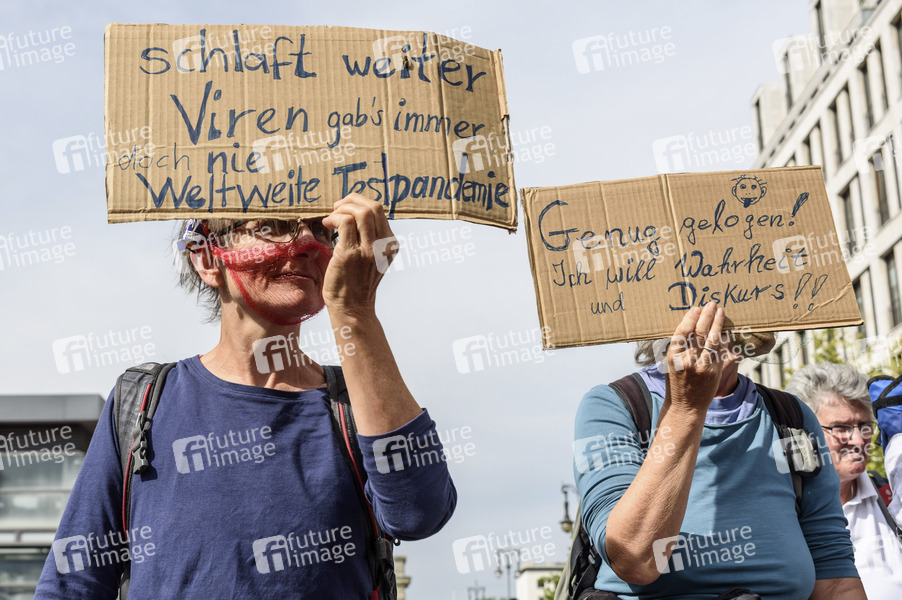 schlaft weiter
Viren gab's immer
doch nie
Weltweite Testpandemie
Genug gelogen!
Ich will Wahrheit
und Diskurs!!
fi future image